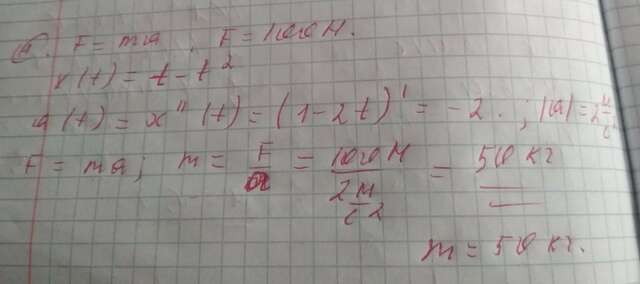 F = ma. F = 100 Н.
x(t) = t - t²
a(t) = x''(t) = (1 - 2t)' = -2.; |a| = 2 м/с²
F = ma; m = F/a = 100 Н / 2 м/с² = 50 кг
m = 50 кг.